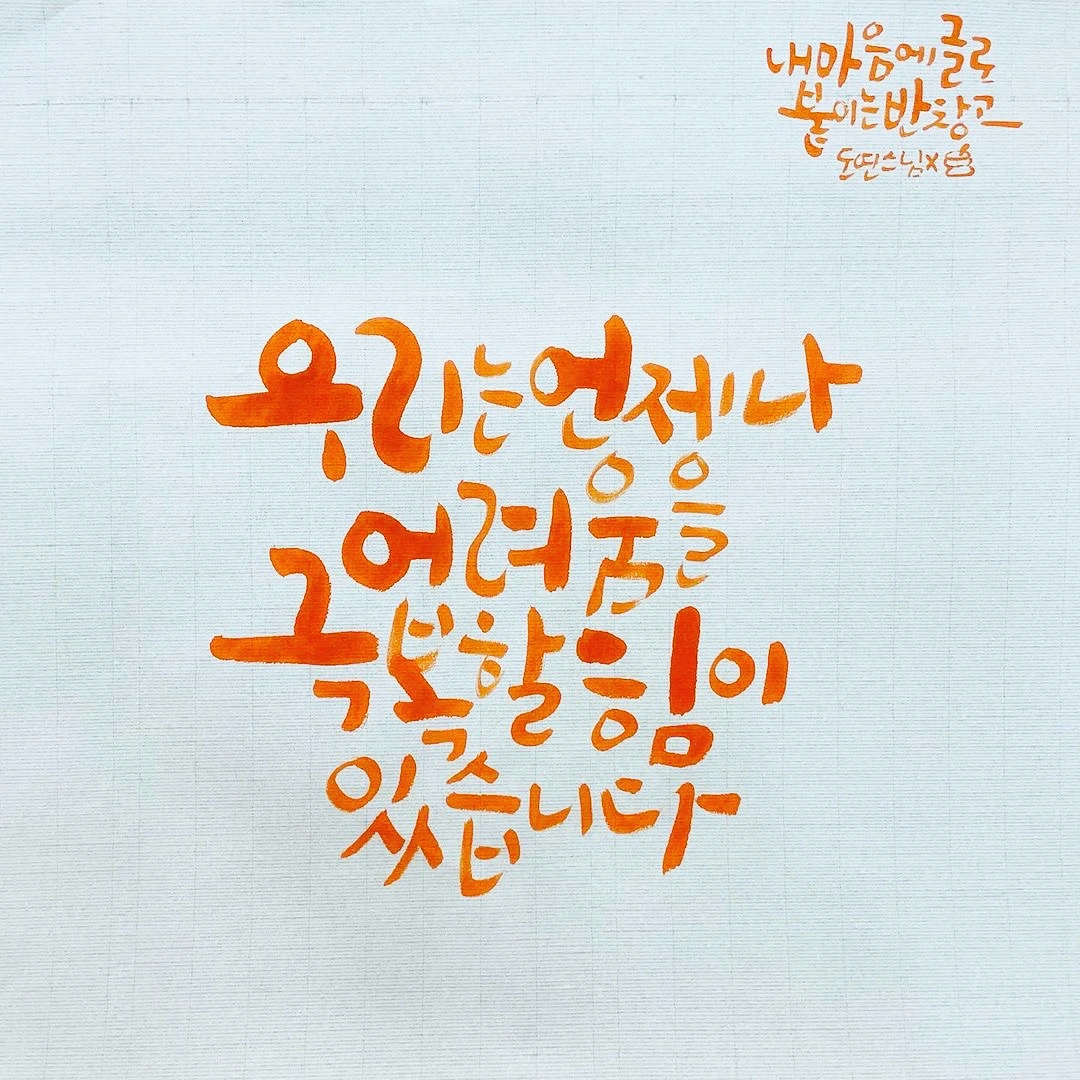 내마음에글로
붙이는반창고
도연스님x
우리는언제나
어려움을
극복할힘이
있습니다